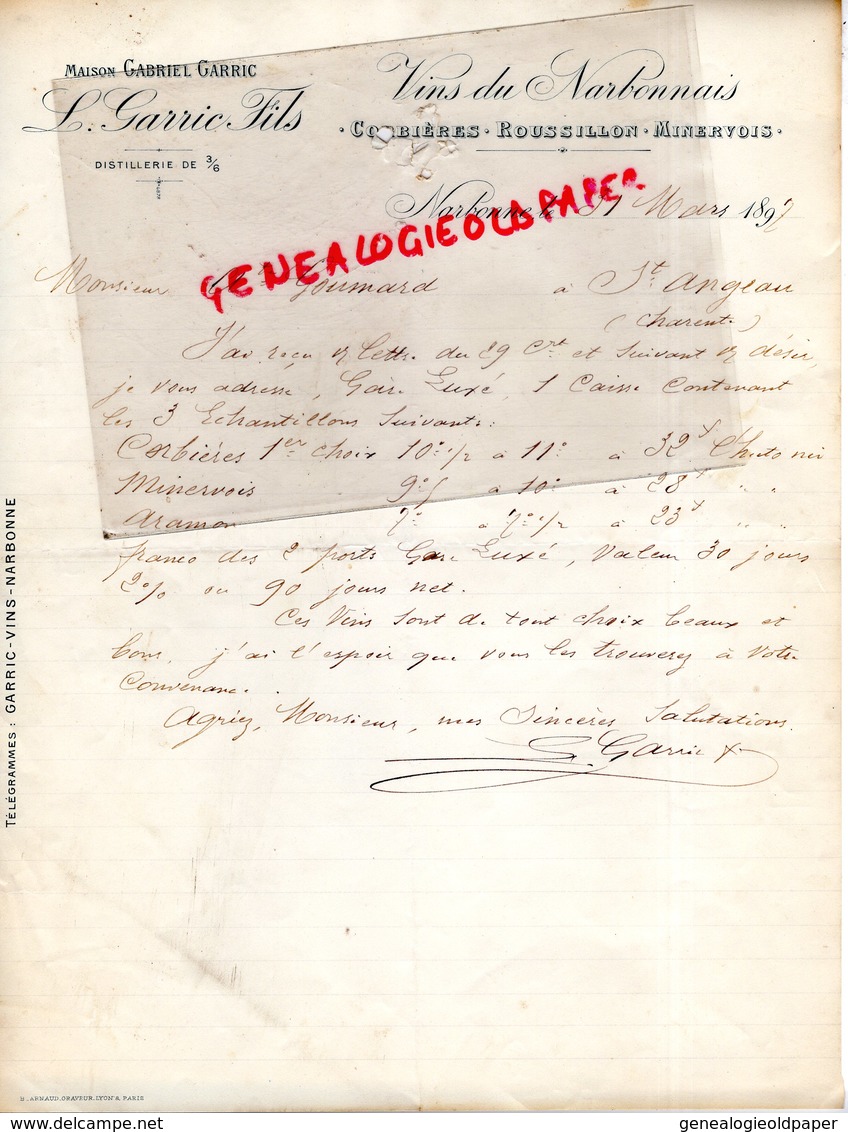 MAISON GABRIEL GARRIC
L. Garric Fils
DISTILLERIE DE 3/6
Vins du Narbonnais
CORBIÈRES · ROUSSILLON · MINERVOIS
GENEALOGIEOLDPAPER
Narbonne le 31 Mars 1897
Monsieur Goumard à St. Angeau
(Charente)
J'ai reçu v/ lettre du 29 crt et suivant v/ désir,
je vous adresse, Gare Luxé, 1 Caisse Contenant
les 3 Echantillons suivants:
Corbières 1er choix 10°1/2 à 11° à 32f l'hecto nu
Minervois 9°5 à 10° à 28f " "
Aramon 7° à 7°1/2 à 23f " "
franco des 2 ports Gare Luxé, Valeur 30 jours
2% ou 90 jours net.
Ces Vins sont de tout choix beaux et
bons, j'ai l'espoir que vous les trouverez à votre
Convenance.
Agréez, Monsieur, mes Sincères Salutations.
L. Garric
TÉLÉGRAMMES: GARRIC-VINS-NARBONNE
B. ARNAUD, GRAVEUR, LYON & PARIS
delcampe.net
genealogieoldpaper